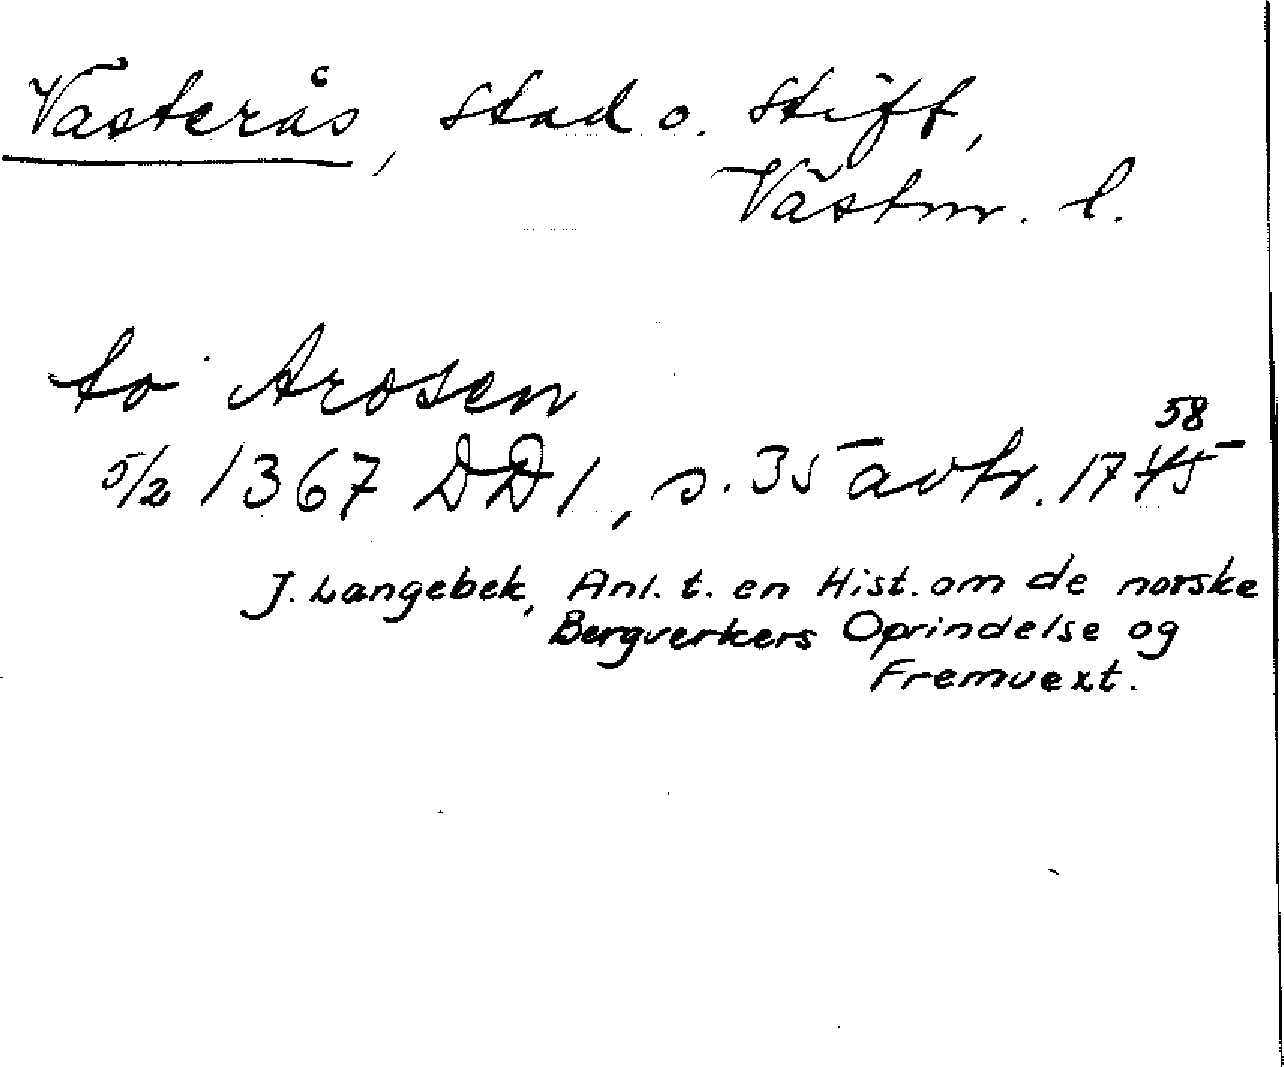 Västerås, stad o. stift,
Västm. l.
to Arosen
5/2 1367 DD1, s. 35 avtr. 1758
J. Langebek, Anl. t. en Hist. om de norske
Bergverkers Oprindelse og
Fremvext.